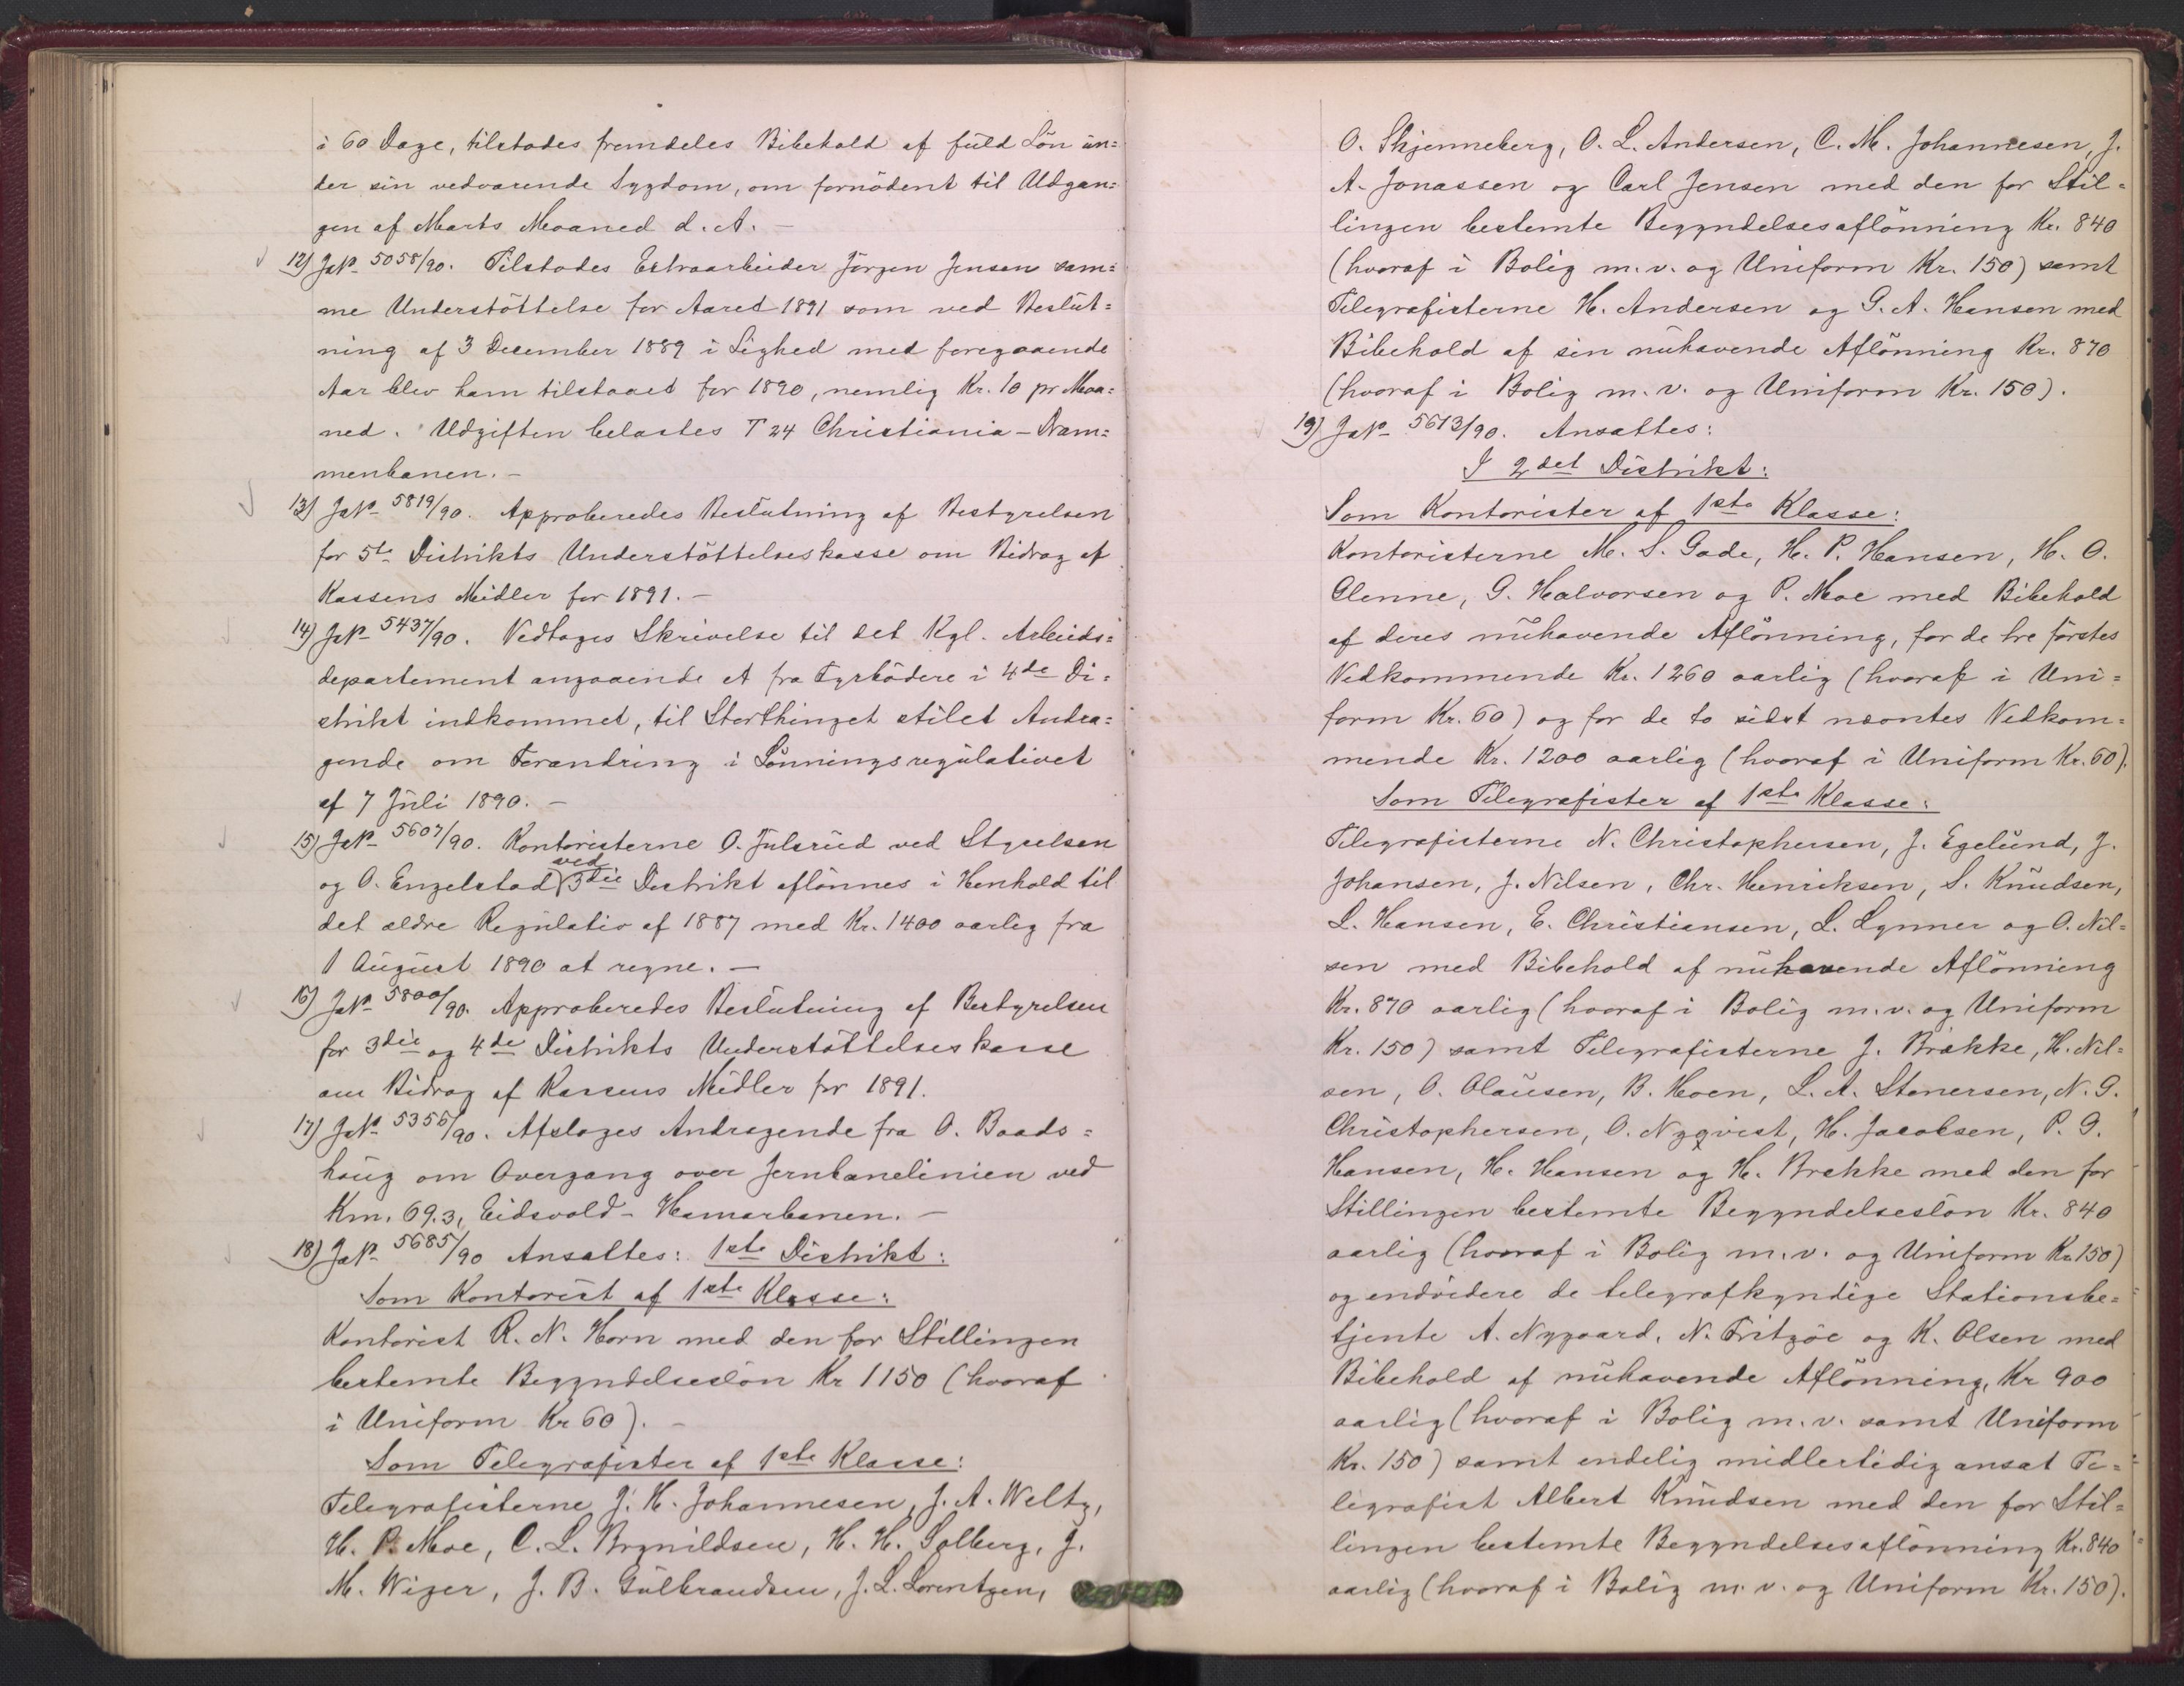 i 60 Dage, tilstodes fremdeles Bibehold af fuld Lön un=
der sin vedvarende Sygdom, om fornödent til Udgan=
gen af Marts Maaned d. A. –
12) JNo 5058/90. Tilstodes Extraarbeider Jörgen Jensen sam=
me Understöttelse for Aaret 1891 som ved Beslut=
ning af 3 December 1889 i Lighed med foregaaende
Aar blev ham tilstaaet for 1890, nemlig Kr. 10 pr Maa=
ned. Udgiften belastes T 24 Christiania–Dram=
menbanen. –
13) JNo 5819/90. Approberedes Beslutning af Bestyrelsen
for 5te Distrikts Understöttelseskasse om Bidrag af
Kassens Midler for 1891. –
14) JNo 5437/90. Vedtoges Skrivelse til det Kgl. Arbeids=
departement angaaende et fra Fyrbödere i 4de Di=
strikt indkommet, til Storthinget stilet Andra=
gende om Forandring i Lönningsregulativet
af 7 Juli 1890. –
15) JNo 5607/90. Kontoristerne O. Julsrud ved Styrelsen
og O. Engelstad ved 3die Distrikt aflönnes i Henhold til
det ældre Regulativ af 1887 med Kr. 1400 aarlig fra
1 August 1890 at regne. –
16) JNo 5800/90. Approberedes Beslutning af Bestyrelsen
for 3die og 4de Distrikts Understöttelseskasse
om Bidrag af Kassens Midler for 1891.
17) JNo 5356/90. Afsloges Andragende fra O. Baads=
houg om Overgang over Jernbanelinien ved
Km. 69.3, Eidsvold–Hamarbanen. –
18) JNo 5685/90 Ansattes: 1ste Distrikt:
Som Kontorist af 1ste Klasse:
Kontorist R. N. Horn med den for Stillingen
bestemte Begyndelseslön Kr 1150 (hvoraf
i Uniform Kr 60). –
Som Telegrafister af 1ste Klasse:
Telegrafisterne J. H. Johannesen, J. A. Weltz,
H. P. Moe, C. L. Brynildsen, H. H. Solberg, J.
M. Wiger, J. B. Gulbrandsen, J. L. Lorentzen,
O. Skjenneberg, O. L. Andersen, C. M. Johannesen, J.
A. Jonassen og Carl Jensen med den for Stil=
lingen bestemte Begyndelsesaflönning Kr. 840
(hvoraf i Bolig m. v. og Uniform Kr. 150) samt
Telegrafisterne H. Andersen og G. A. Hansen med
Bibehold af sin nuhavende Aflönning Kr. 870
(hvoraf i Bolig m. v. og Uniform Kr. 150).
19) JNo 5673/90. Ansattes:
I 2det Distrikt:
Som Kontorister af 1ste Klasse:
Kontoristerne M. S. Gade, H. P. Hansen, H. O.
Glenne, G. Halvorsen og P. Moe med Bibehold
af deres nuhavende Aflönning, for de tre förstes
Vedkommende Kr. 1260 aarlig (hvoraf i Uni=
form Kr. 60) og for de to sidst nævntes Vedkom=
mende Kr. 1200 aarlig (hvoraf i Uniform Kr. 60).
Som Telegrafister af 1ste Klasse:
Telegrafisterne N. Christophersen, J. Egelund, J.
Johansen, J. Nilsen, Chr. Henriksen, S. Knudsen,
L. Hansen, E. Christiansen, L. Lynner og O. Nil=
sen med Bibehold af nuhavende Aflönning
Kr. 870 aarlig (hvoraf i Bolig m. v. og Uniform
Kr. 150) samt Telegrafisterne J. Brække, H. Nil=
sen, O. Olausen, B. Hoen, L. A. Stenersen, N. G.
Christophersen, O. Nyqvist, H. Jacobsen, P. G.
Hansen, H. Hansen og H. Brekke med den for
Stillingen bestemte Begyndelseslön Kr. 840
aarlig (hvoraf i Bolig m. v. og Uniform Kr. 150)
og endvidere de telegrafkyndige Stationsbe=
tjente A. Nygaard, N. Fritzöe og K. Olsen med
Bibehold af nuhavende Aflönning, Kr 900
aarlig (hvoraf i Bolig m. v. samt Uniform
Kr. 150) samt endelig midlertidig ansat Te=
legrafist Albert Knudsen med den for Stil=
lingen bestemte Begyndelsesaflönning Kr. 840
aarlig (hvoraf i Bolig m. v. og Uniform Kr. 150).